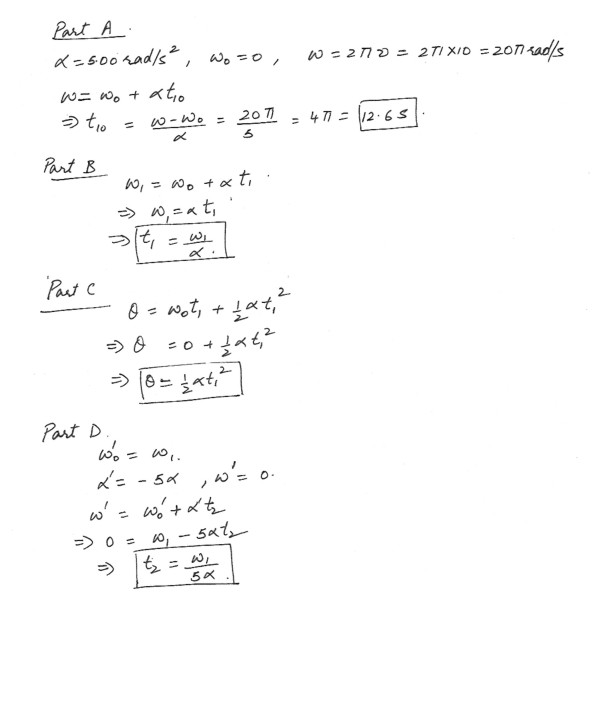 Part A.
α = 5.00 rad/s², ω₀ = 0, ω = 2πν = 2π×10 = 20π rad/s
ω = ω₀ + αt₁₀
⇒ t₁₀ = (ω-ω₀)/α = 20π/5 = 4π = 12.6 s.
Part B
ω₁ = ω₀ + αt₁.
⇒ ω₁ = αt₁
⇒ t₁ = ω₁/α.
Part C
θ = ω₀t₁ + ½αt₁²
⇒ θ = 0 + ½αt₁²
⇒ θ = ½αt₁²
Part D.
ω₀' = ω₁.
α' = - 5α , ω' = 0.
ω' = ω₀' + α't₂
⇒ 0 = ω₁ - 5αt₂
⇒ t₂ = ω₁/5α.